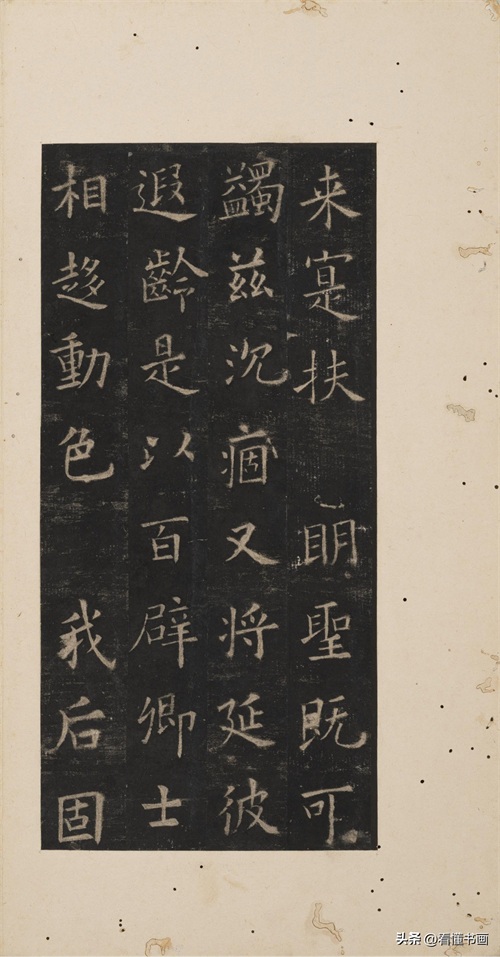 来寔扶 明聖既可
蠲兹沉痼又将延彼
遐齡是以百辟卿士
相趍動色 我后固
头条 @看懂书画